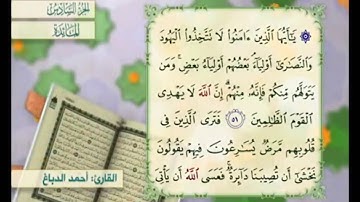 الجزء السادس
المائدة
۞ يَٰٓأَيُّهَا ٱلَّذِينَ ءَامَنُوا۟ لَا تَتَّخِذُوا۟ ٱلْيَهُودَ
وَٱلنَّصَٰرَىٰٓ أَوْلِيَآءَ ۘ بَعْضُهُمْ أَوْلِيَآءُ بَعْضٍ ۚ وَمَن
يَتَوَلَّهُم مِّنكُمْ فَإِنَّهُۥ مِنْهُمْ ۗ إِنَّ ٱللَّهَ لَا يَهْدِى
ٱلْقَوْمَ ٱلظَّٰلِمِينَ ٥١ فَتَرَى ٱلَّذِينَ فِى
قُلُوبِهِم مَّرَضٌ يُسَٰرِعُونَ فِيهِمْ يَقُولُونَ
نَخْشَىٰٓ أَن تُصِيبَنَا دَآئِرَةٌ ۚ فَعَسَى ٱللَّهُ أَن يَأْتِىَ
القارئ: أحمد الدباغ